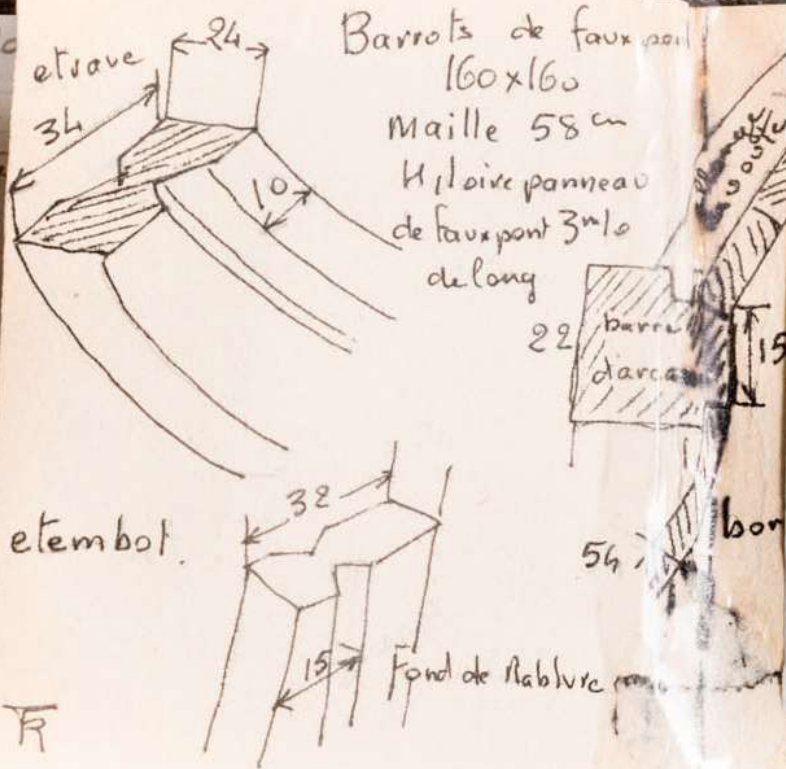 etrave
24
34
10
Barrots de faux pont
160x160
Maille 58 cm
Hiloire panneau
de fauxpont 3m10
de long
voute
22
barre
d'arcas
15
etembot
32
15
Fond de Rablure
54
bor